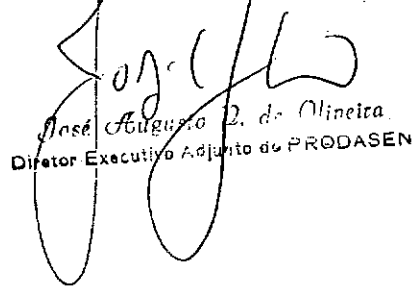 José Augusto D. de Oliveira
Diretor Executivo Adjunto do PRODASEN